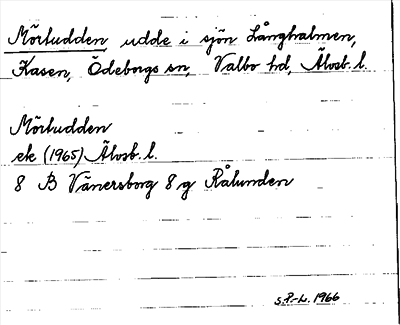 Mörtudden udde i sjön Långhalmen,
Kasen, Ödeborgs sn, Valbo hd, Älvsb. l.
Mörtudden
ek (1965) Älvsb. l.
8 B Vänersborg 8 g Rålunden
S.P-L. 1966